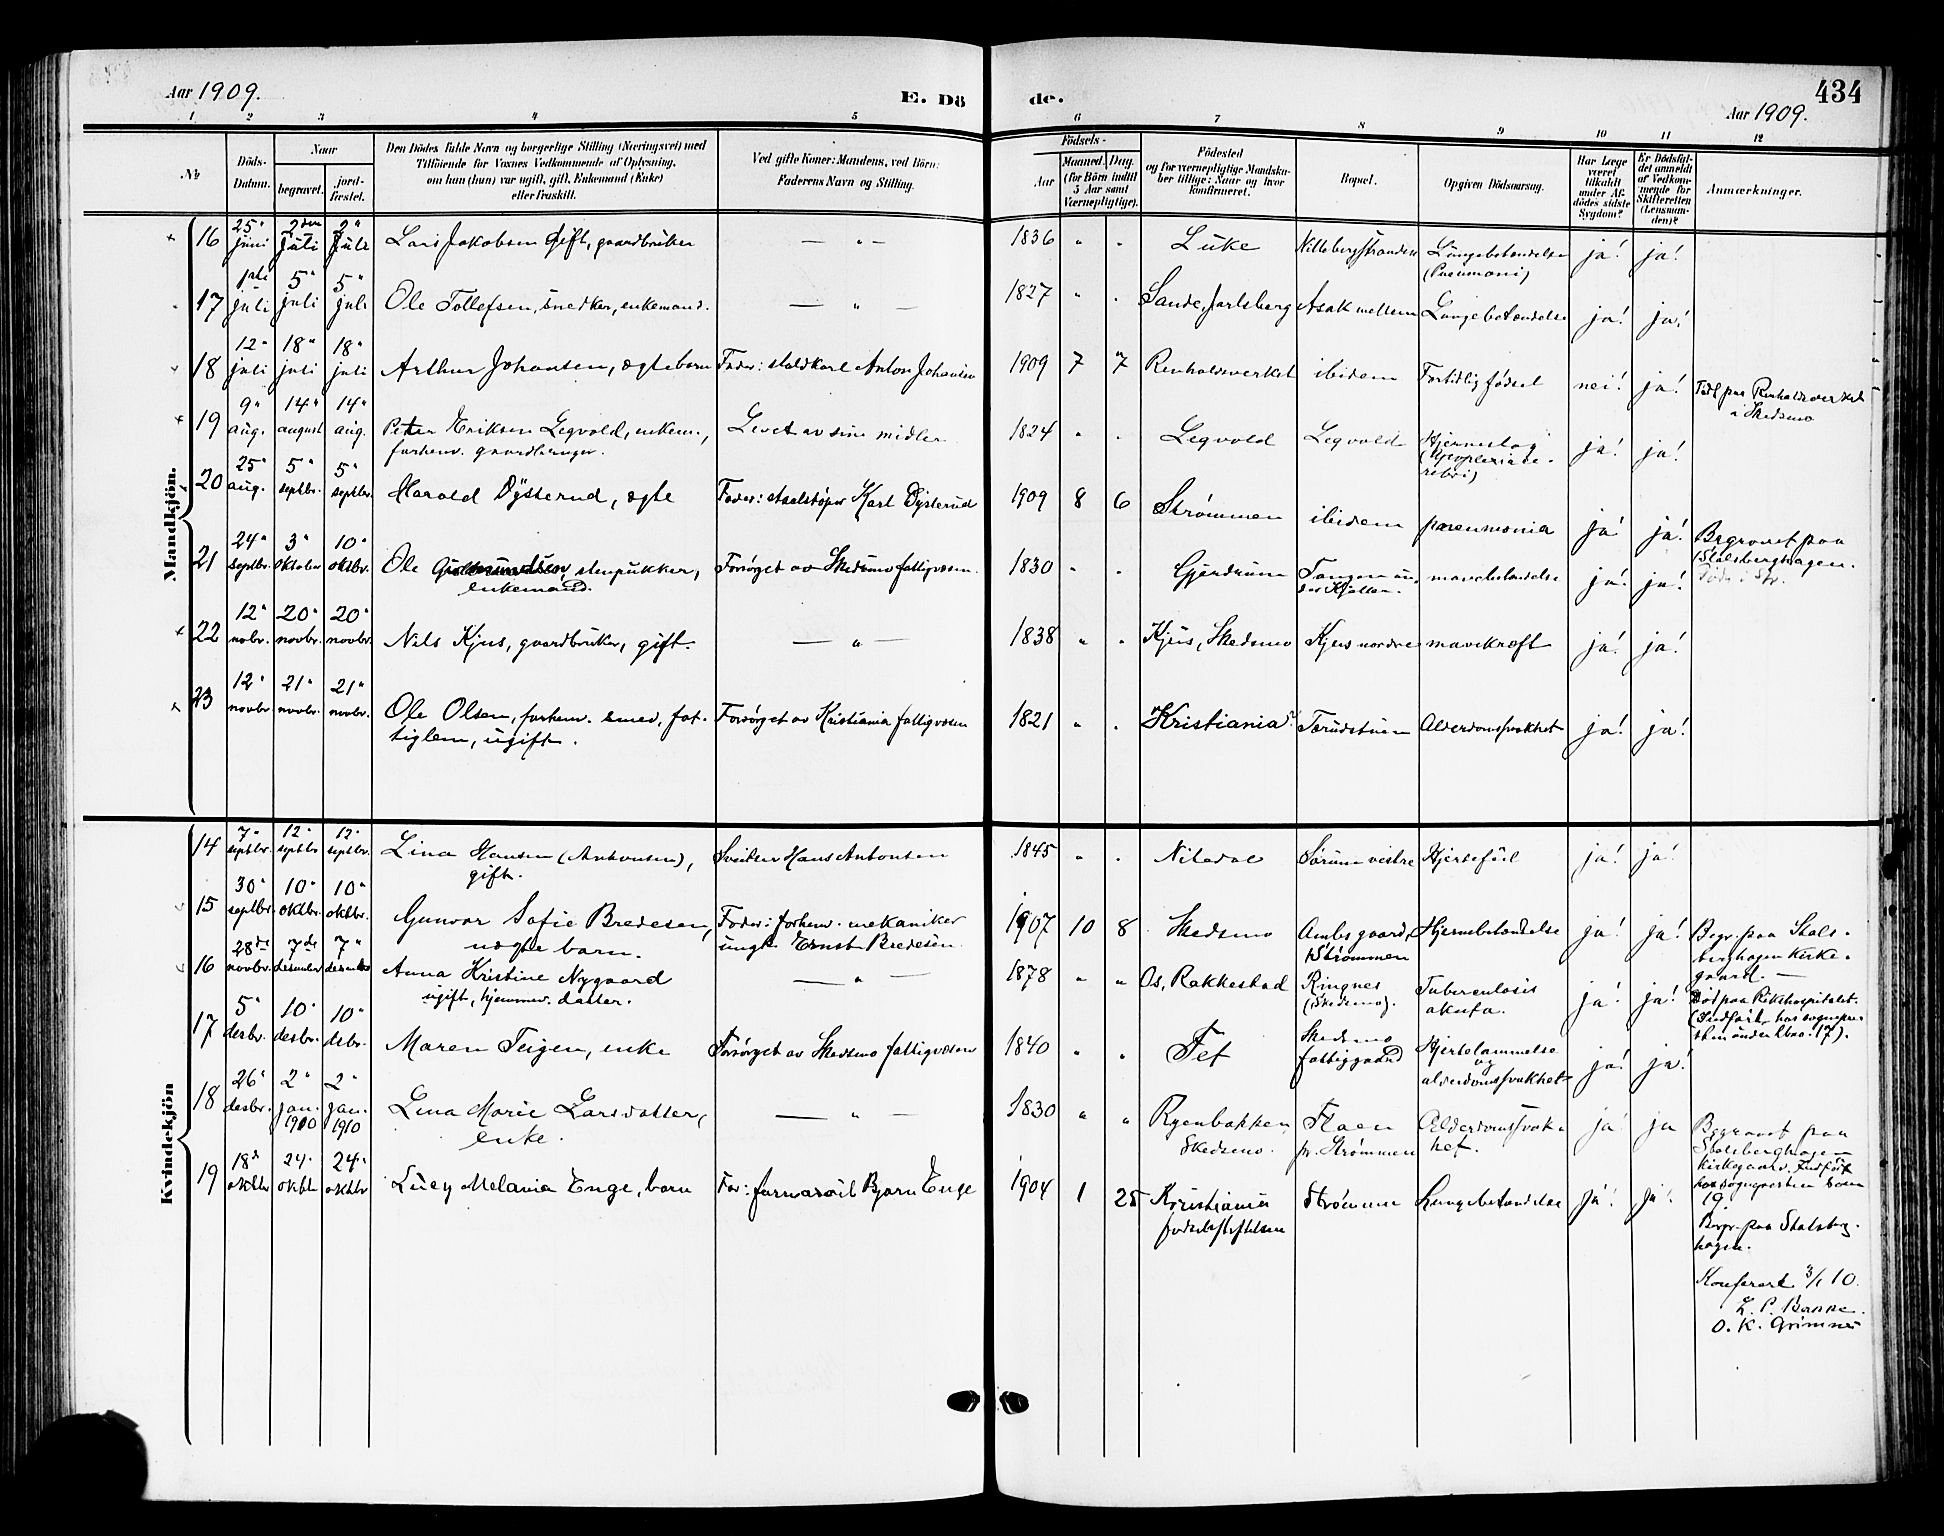 Aar 1909.
E. Dö
de.
434
Aar 1909.
1 2 3 4 5 6 7 8 9 10 11 12
№
Döds-
Datum.
Naar
begravet.
jord-
fæstet.
Den Dödes fulde Navn og borgerlige Stilling (Næringsvei) med
Tilföiende for Voxnes Vedkommende af Oplysning,
om han (hun) var ugift, gift, Enkemand (Enke)
eller fraskilt.
Ved gifte Koner: Mandens, ved Börn:
Faderens Navn og Stilling.
Födsels-
Aar
Maaned. Dag.
(for Börn indtil
5 Aar samt
Værnepligtige).
Födested
og for værnepligtige Mandska-
ber tillige: Naar og hvor
konfirmeret.
Bopæl.
Opgiven Dödsaarsag.
Har Læge
været
tilkaldt
under Af-
dödes sidste
Sygdom?
Er Dödsfal-
det anmeldt
af Vedkom-
mende for
Skifteretten
(Lensman-
den)?
Anmærkninger.
Mandkjön.
16 25" juni 2den juli 2" juli Lars Jakobsen Gift, gaardbruker — " — 1836 " " Luke Nittebergstranden Lungebetændelse (Pneumoni) ja! ja!
17 1ste juli 5" juli 5" juli Ole Tollefsen, snedker, enkemand. — " — 1827 " " Sande, Jarlsberg Asak mellem Lungebetændelse ja! ja!
18 12" juli 18" juli 18" juli Arthur Johansen, ægte barn Fader: staldkarl Anton Johansen 1909 7 7 Renholdsverket ibidem Fortidlig födsel nei! ja! Födt paa Renholdsverket
i Skedsmo
19 9" aug. 14" august 14" aug. Petter Eriksen Legvold, enkem.,
forhenv. gaardbruger. Levet av sine midler 1824 " " Legvold Legvold Hjerneslag
(Apoplexia ce-
rebri) ja! ja!
20 25" aug. 5" septbr. 5" septbr. Harald Dysterud, ægte Fader: staalstøper Karl Dysterud 1909 8 6 Strømmen ibidem pneumonia ja! ja! Begravet paa
Stalsberghagen.
21 24" septbr. 3" oktober 10" oktbr. Ole Gudmundsen, stenpukker,
enkemand. Forsørget av Skedsmo fattigvæsen 1830 " " Gjerdrum Tangen un-
der Kjellen. mavebetændelse ja! ja!
22 12" novbr. 20" novbr. 20" novbr. Nils Kjus, gaardbruker, gift. — " — 1838 " " Kjus, Skedsmo Kjus nordre mavekræft ja! ja!
23 12" novbr 21" novbr. 21" novbr. Ole Olsen, forhenv. smed, fat-
tiglem, ugift. Forsørget av Kristiania fattigvæsen 1821 " " Kristiania? Tærudstuen Alderdomssvakhet ja! ja!
Kvindekjön
14 7" septbr. 12" septbr 12" septbr. Lina Hansen (Antonsen),
gift. Sveitser Hans Antonsen 1845 " " Nitedal Sørum vestre Hjertefeil ja! ja!
15 30" septbr. 10" oktbr. 10" oktbr. Gunvor Sofie Bredesen,
uægte barn. Fader: forhenv. mekaniker
ungk. Ernst Bredesen 1907 10 8 Skedsmo Ambsgaard,
Strømmen Hjernebetændelse ja! ja! Begr. paa Stals-
berghagen kirke-
gaard. —
16 28de novbr. 7de desember 7" desember Anna Kristine Nygaard
ugift, hjemmev. datter. — " — 1878 " " Os, Rakkestad Ringnes
(Skedsmo). Tuberculosis
akuta. ja! ja! Död paa Rikshospitalet.
(Indført hos sogneprest
sten under lbno. 17).
17 5" desbr. 10" desbr. 10" desbr. Maren Teigen, enke Forsørget av Skedsmo fattigvæsen 1840 " " Fet Skedsmo
fattiggaard Hjertelammelse
og
alderdomssvakhet ja! ja!
18 26" desbr. 2" jan. 1910 2" jan. 1910 Lina Marie Larsdatter,
enke. — " — 1830 " " Ryenbakken
Skedsmo. Flaen
pr. Strømmen Alderdomssvak-
het. ja! ja Begravet paa
Stalsberghagen
kirkegaard. Indført
hos sognepresten som
19.
19 18" oktbr 24" oktbr 24" oktbr Lucy Melania Enge, barn Far: Bjarne Enge 1904 1 25 Kristiania
fødselsstiftelsen Strømmen Lungebetændelse ja! ja! Begr. paa Stalsberg-
hagen.
Konferert 3/1 10.
O. K. Grimnes